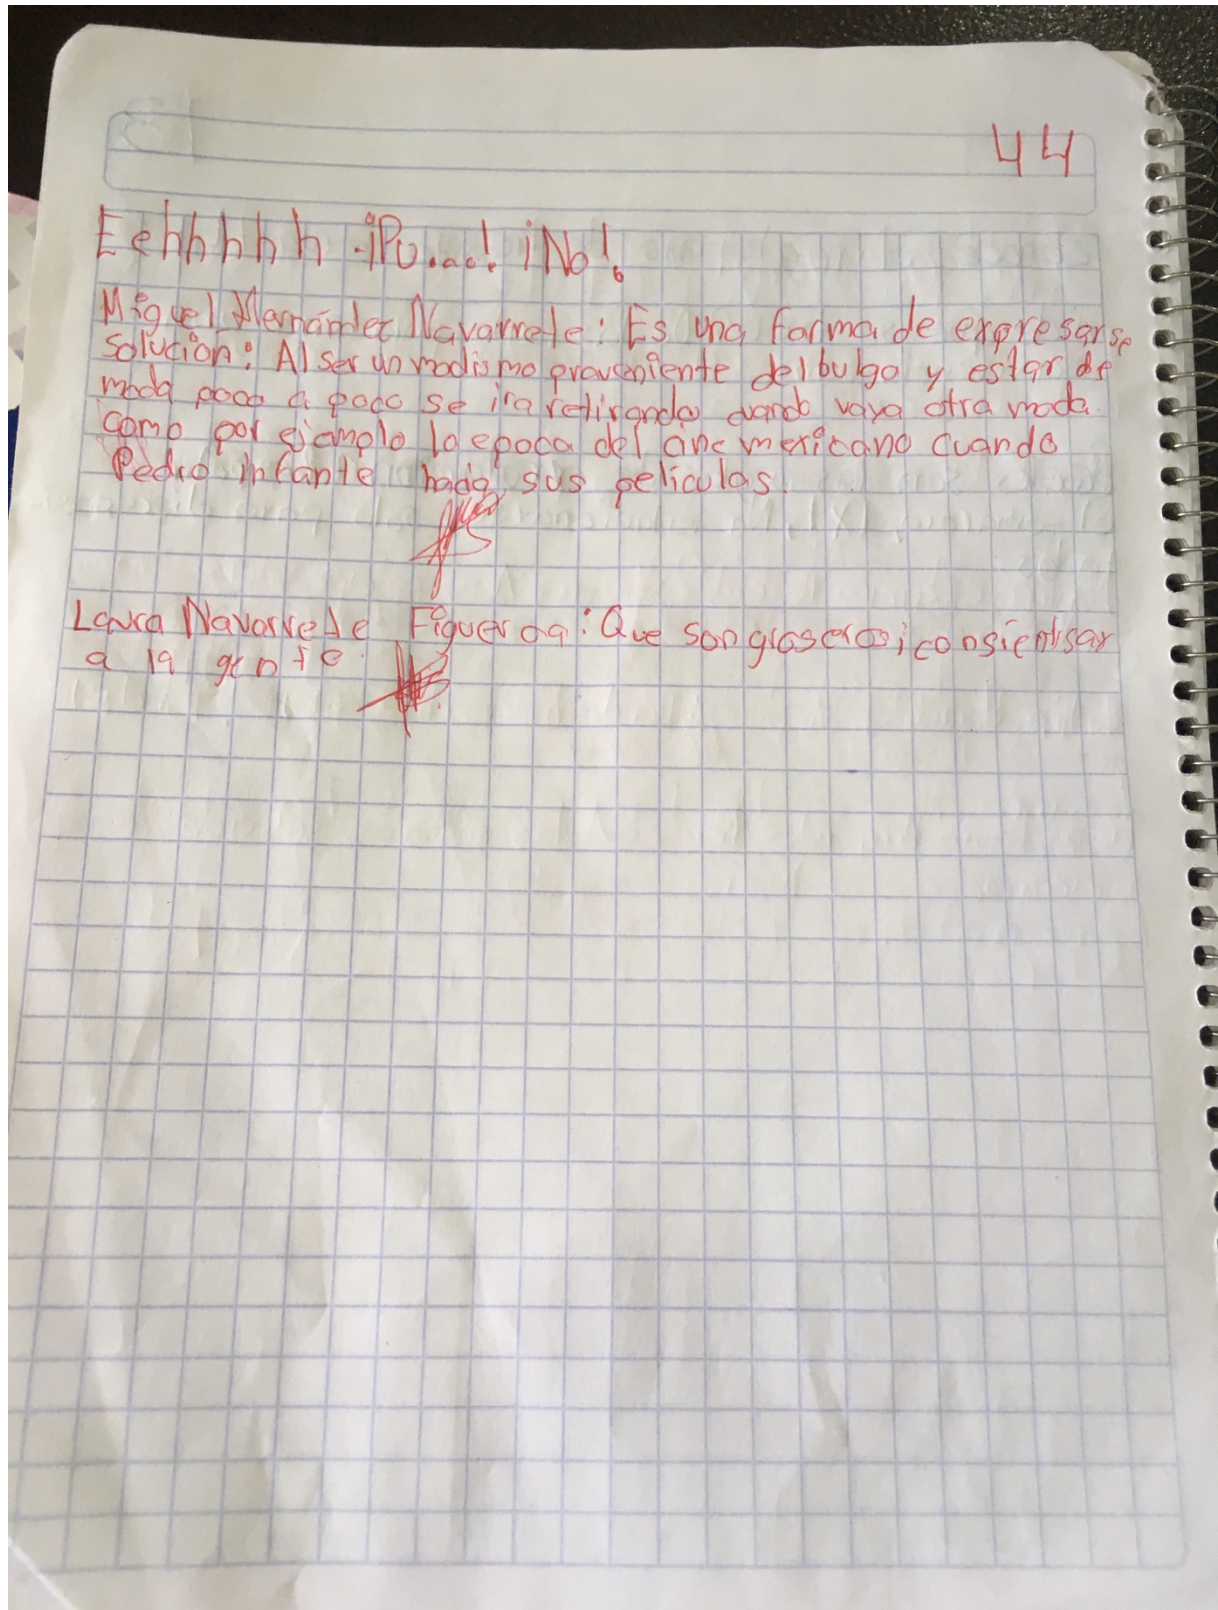 44
Eehhhhh ¡Pu....! ¡No!.
Miguel Hernández Navarrete: Es una forma de expresarse
solución: Al ser un modismo proveniente del bulgo y estar de
moda poco a poco se ira retirando cuando vaya otra moda
como por ejemplo la epoca del cine mexicano cuando
Pedro infante hacia sus peliculas.
Laura Navarrete Figueroa: Que son groseros; consientisar
a la gente.